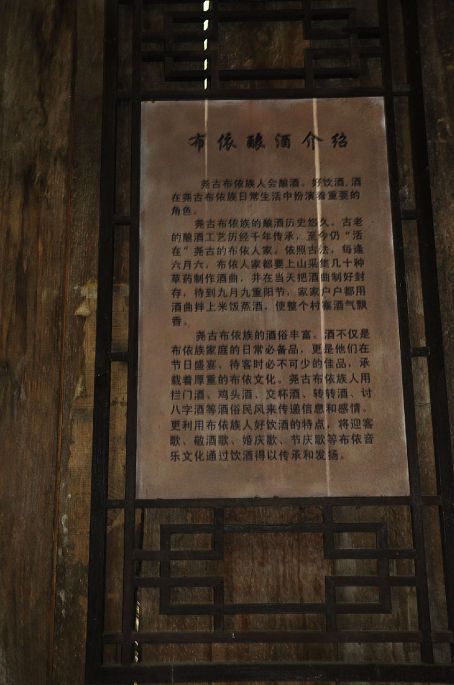 布依酿酒介绍
尧古布依族人会酿酒。好饮酒,酒
在尧古布依族日常生活中扮演着重要的
角色。
尧古布依族的酿酒历史悠久。古老
的酿酒工艺历经千年传承,至今仍“活
在”尧古的布依人家。依照古法,每逢
六月六,布依人家都要上山采集几十种
草药制作酒曲,并在当天把酒曲制好封
存,待到九月九重阳节,家家户户都用
酒曲拌上米饭蒸酒,使整个村寨酒气飘
香。
尧古布依族的酒俗丰富。酒不仅是
布依族家庭的日常必备品,更是他们在
节日盛宴、待客时必不可少的佳品,承
载着厚重的布依文化。尧古布依族人用
拦门酒、鸡头酒、交杯酒、转转酒、讨
八字酒等酒俗民风来传递信息和感情。
更利用布依族人好饮酒的特点,将迎客
歌、敬酒歌、婚庆歌、节庆歌等布依音
乐文化通过饮酒得以传承和发扬。